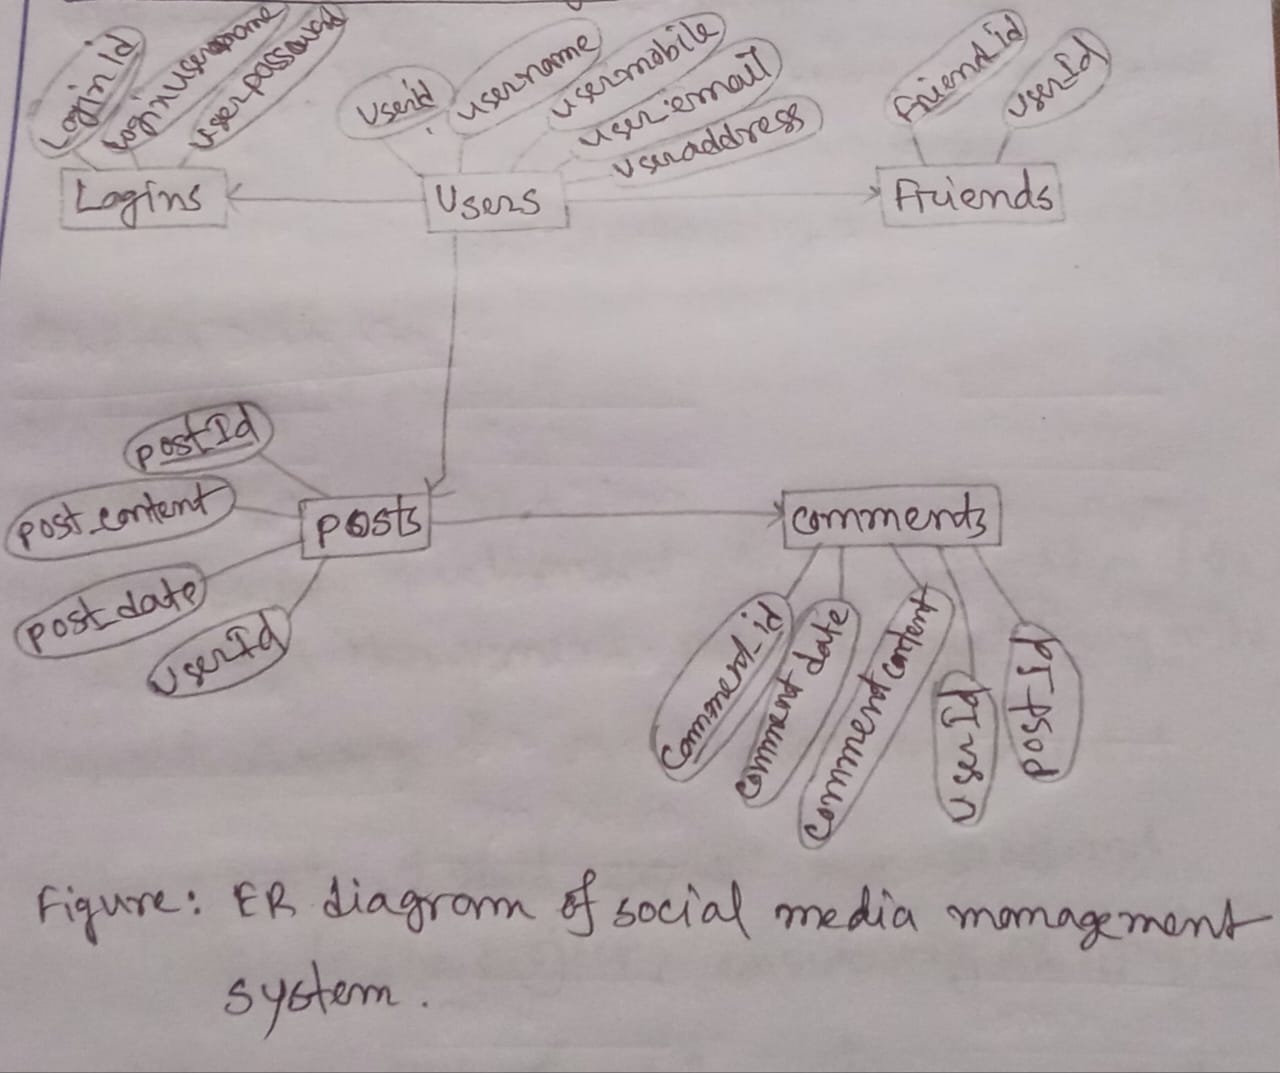 Login Id
loginusername
userpassword
Userid
username
usermobile
user email
useraddress
Friend_id
userId
Logins
Users
Friends
postId
post_content
post_date
userId
posts
comments
Comment_id
comment date
comment content
userId
post_Id
Figure: ER diagram of social media management
system.